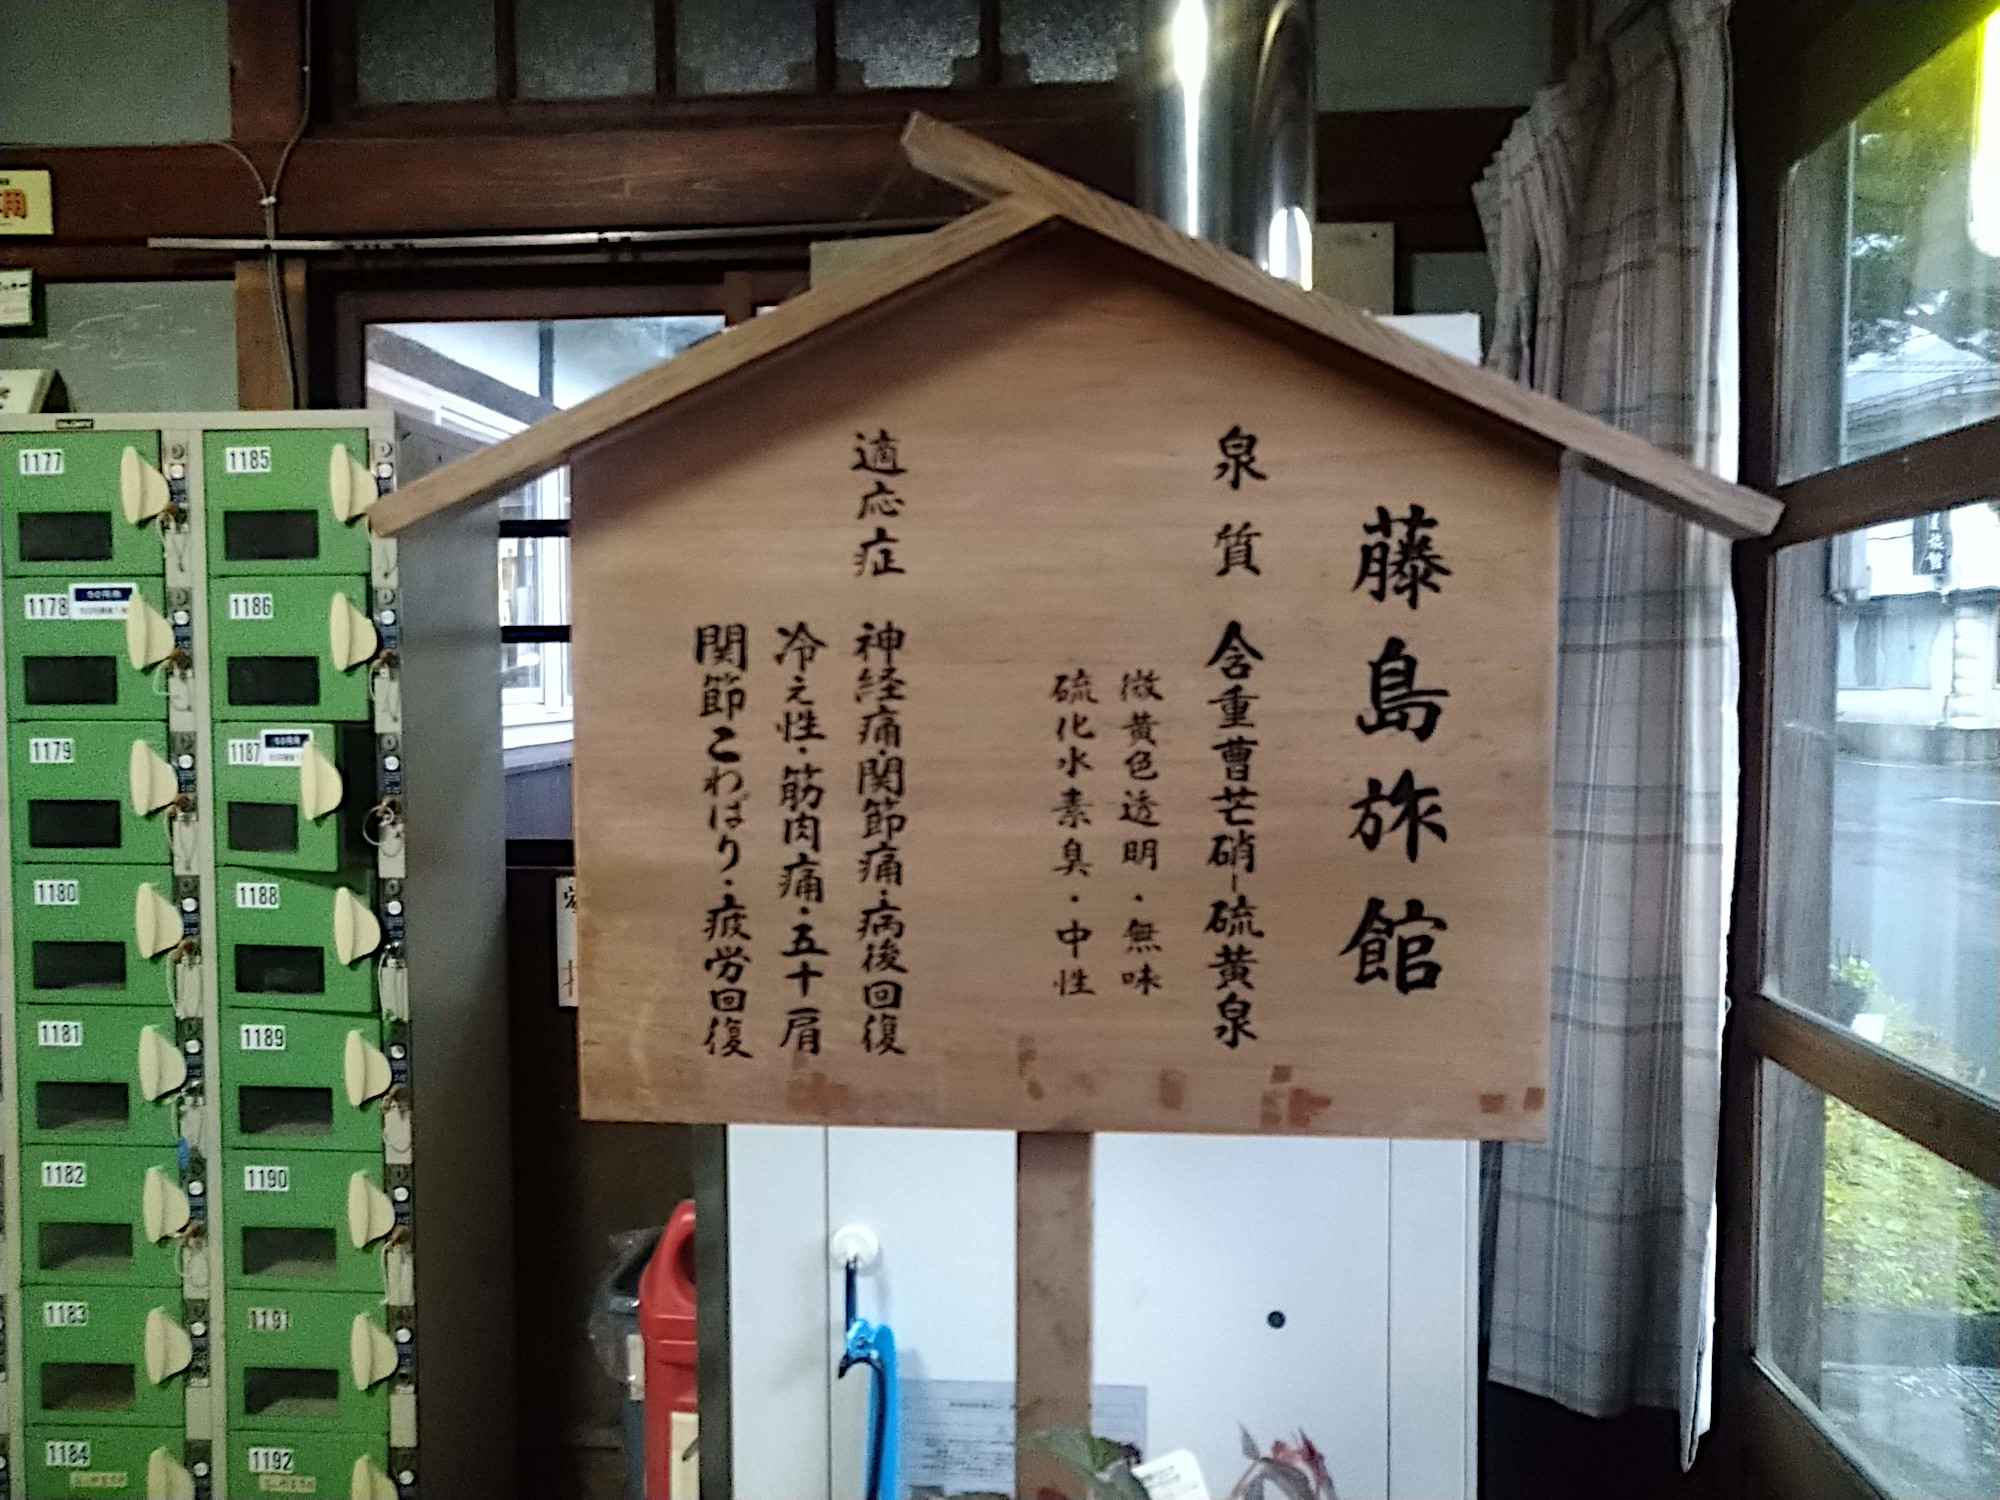 藤島旅館
泉質 含重曹芒硝-硫黄泉
微黄色透明・無味
硫化水素臭・中性
適応症 神経痛・関節痛・病後回復
冷え性・筋肉痛・五十肩
関節こわばり・疲労回復
1177
1185
1178
1186
1179
1187
1180
1188
1181
1189
1182
1190
1183
1191
1184
1192
旅館